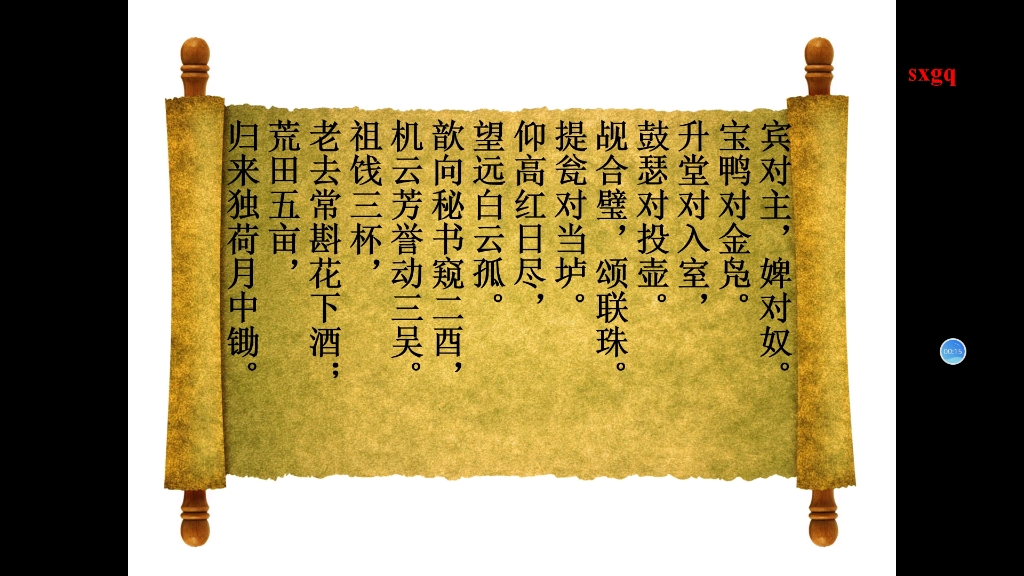 宾对主，婢对奴。
宝鸭对金凫。
升堂对入室，
鼓瑟对投壶。
觇合璧，颂联珠。
提瓮对当垆。
仰高红日尽，
望远白云孤。
歆向秘书窥二酉，
机云芳誉动三吴。
祖饯三杯，
老去常斟花下酒；
荒田五亩，
归来独荷月中锄。
sxgq
00:15